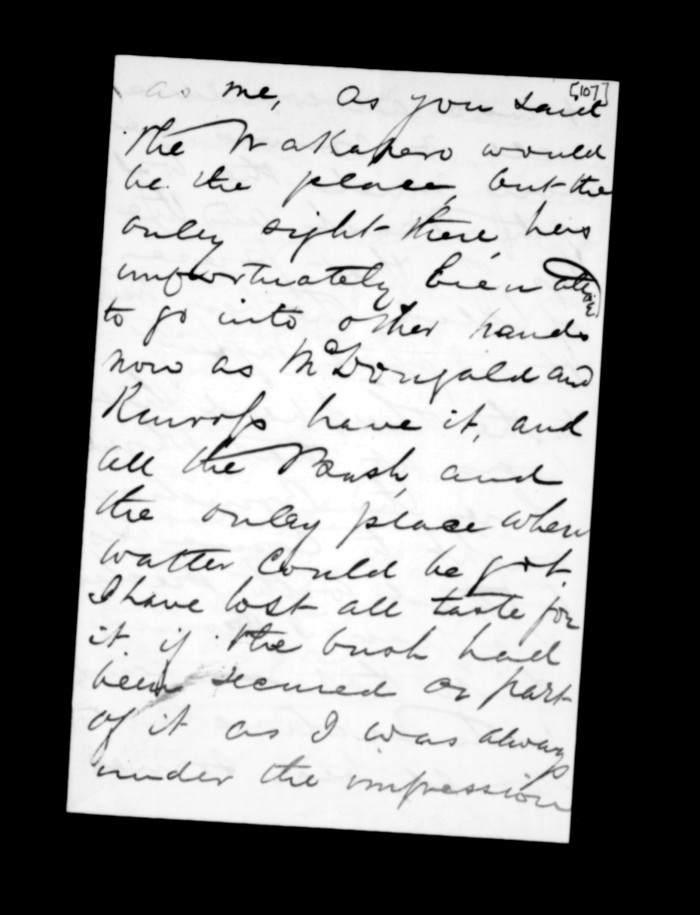 [107]
as me, as you said
the Wakapero would
be the place, but the
only sight there, has
unfortunately been
to go into other hands
now as McDongald and
have it, and
all the Bush, and
the onley place where
watter could be got.
I have lost all taste for
it if the bush had
been secured or part
of it as I was always
under the impression